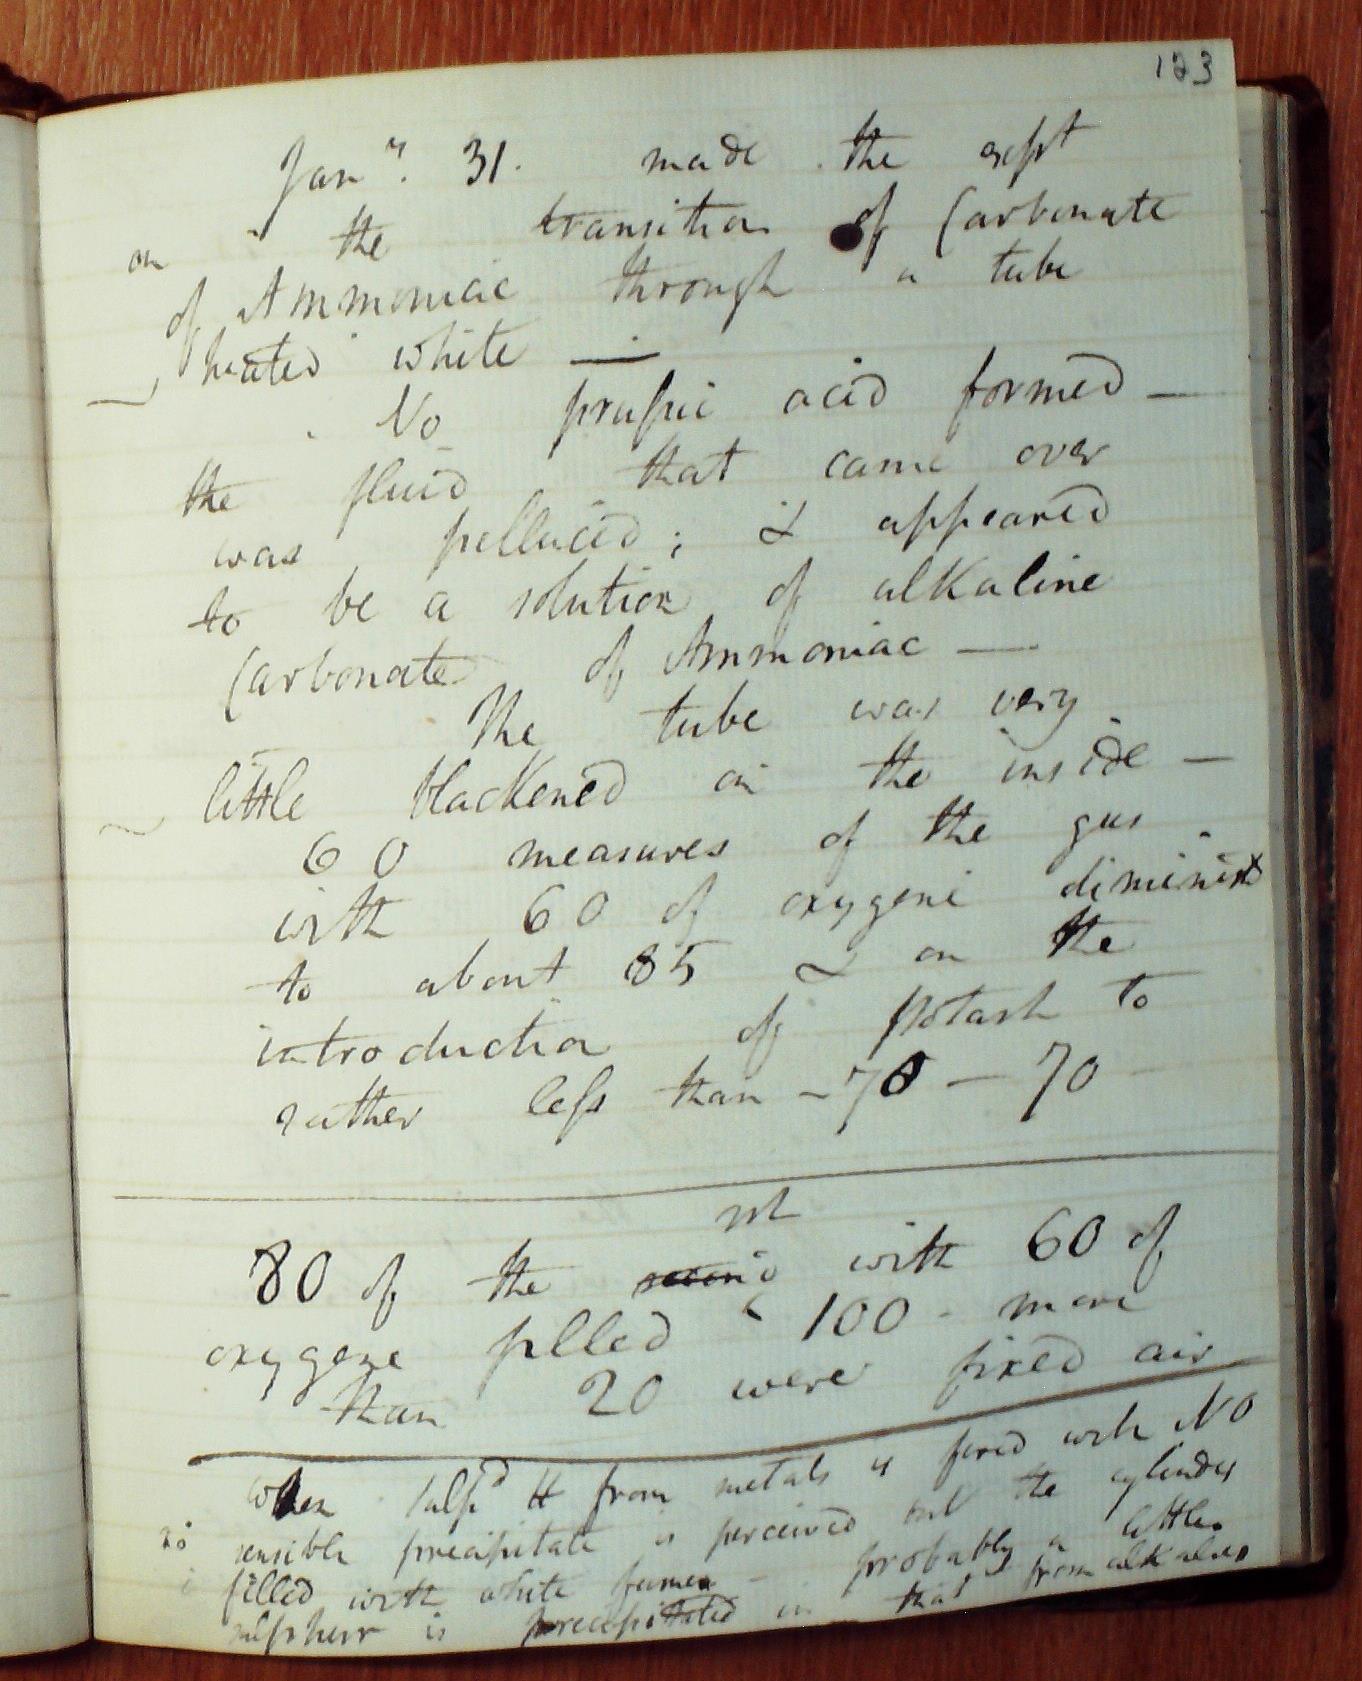 123
Jan.y 31. made the exp.t
on the transition of Carbonate
of Ammoniac through a tube
heated white —
No prussic acid formed —
the fluid that came over
was pellucid; & appeared
to be a solution of alkaline
Carbonate of Ammoniac —
The tube was very
little blackened on the inside —
60 measures of the gas
with 60 of oxygene diminish
to about 85 & on the
introduction of potash to
rather less than - 70 — 70
80 of the with 60 of
oxygene filled 100 - more
than 20 were fixed air
When sulp.d H from metals is fired with NO
no sensible precipitate is perceived but the cylinder
filled with white fumes - probably a little
sulphur is precipitated in that from alkalies